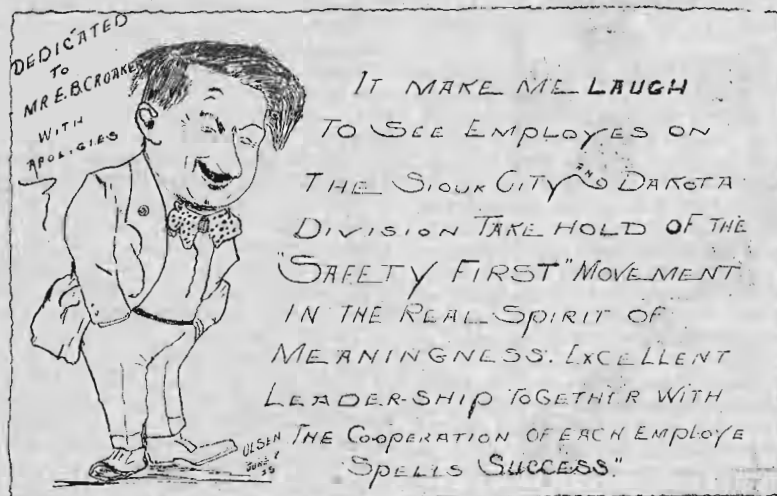 DEDICATED
TO
MR E.B. CROAKER
WITH
APOLIGIES
IT MAKE ME LAUGH
TO SEE EMPLOYES ON
THE SIOUX CITY AND DAKOTA
DIVISION TAKE HOLD OF THE
"SAFETY FIRST" MOVEMENT
IN THE REAL SPIRIT OF
MEANINGNESS. EXCELLENT
LEADER-SHIP TOGETHER WITH
THE COOPERATION OF EACH EMPLOYE
SPELLS SUCCESS."
OLSEN
JUNE